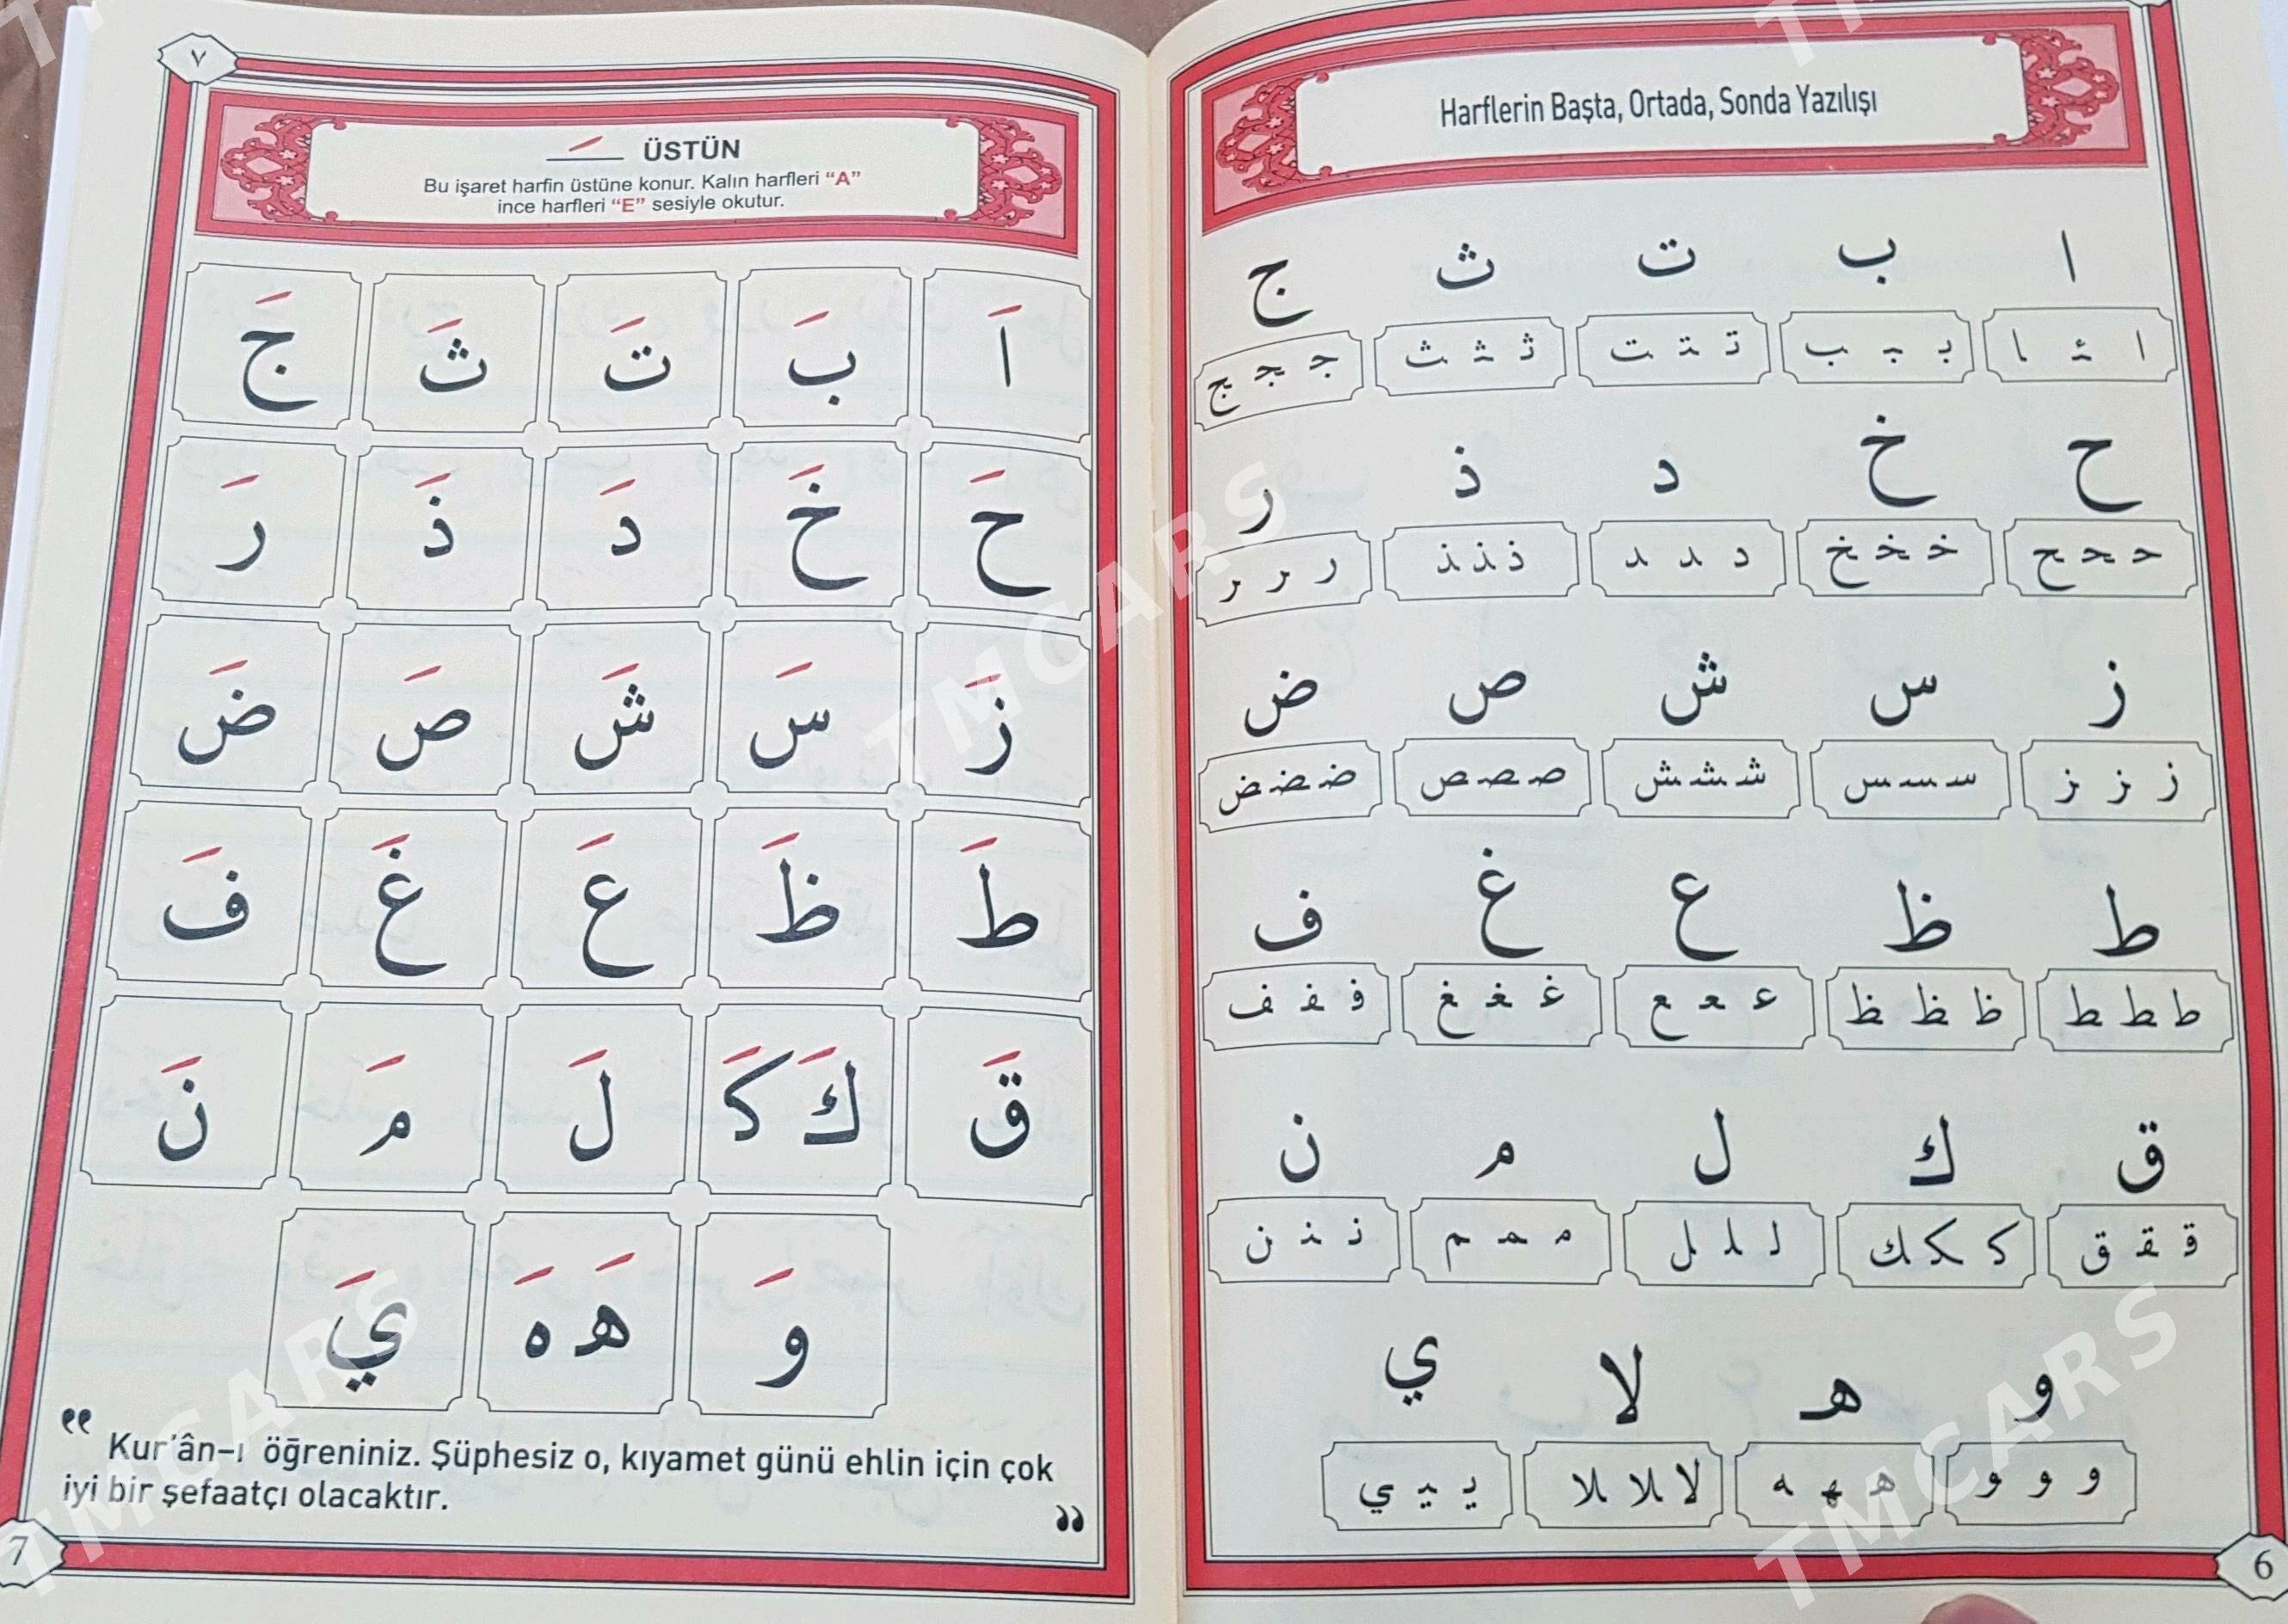 Harflerin Başta, Ortada, Sonda Yazılışı
ا ب ت ث ج
ا ـئـ ـا بـ ـبـ ـب تـ ـتـ ـت ثـ ـثـ ـث جـ ـجـ ـج
ح خ د ذ ر
حـ ـحـ ـح خـ ـخـ ـخ د ـد ـد ذ ـذ ـذ ر ـر ـر
ز س ش ص ض
ز ـز ـز سـ ـسـ ـس شـ ـشـ ـش صـ ـصـ ـص ضـ ـضـ ـض
ط ظ ع غ ف
طـ ـطـ ـط ظـ ـظـ ـظ عـ ـعـ ـع غـ ـغـ ـغ فـ ـفـ ـف
ق ك ل م ن
قـ ـقـ ـق كـ ـكـ ـك لـ ـلـ ـل مـ ـمـ ـم نـ ـنـ ـن
و هـ لا ي
و ـو ـو هـ ـهـ ـه لا ـلا ـلا يـ ـيـ ـي
6
٧
ـَ ÜSTÜN
Bu işaret harfin üstüne konur. Kalın harfleri “A”
ince harfleri “E” sesiyle okutur.
اَ بَ تَ ثَ جَ
حَ خَ دَ ذَ رَ
زَ سَ شَ صَ ضَ
طَ ظَ عَ غَ فَ
قَ كَ كَـ لَ مَ نَ
وَ هَـ هَ يَ
“ Kur’ân–ı öğreniniz. Şüphesiz o, kıyamet günü ehlin için çok
iyi bir şefaatçı olacaktır. ”
7
TMCARS
TMCARS
TMCARS